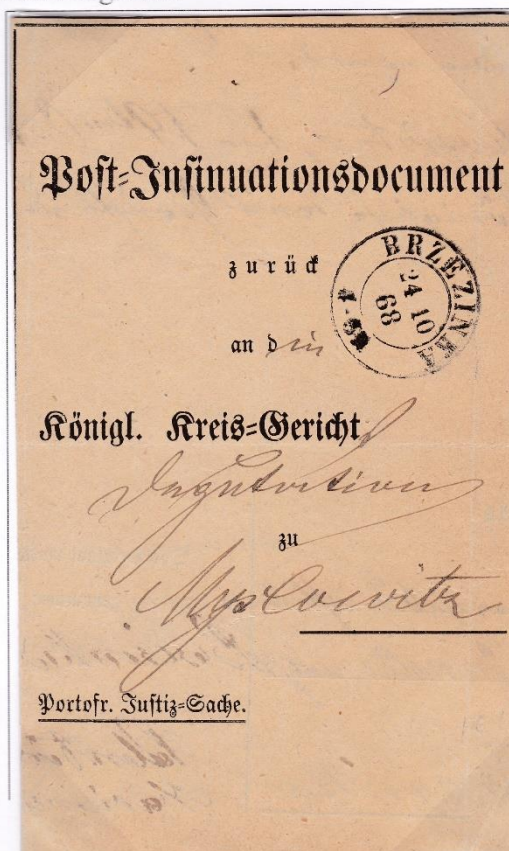 Post-Insinuationsdocument
zurück
BRZEZINKA
24 10
68
an die
Königl. Kreis-Gericht
Deputation
zu
Myslowitz
Portofr. Justiz-Sache.